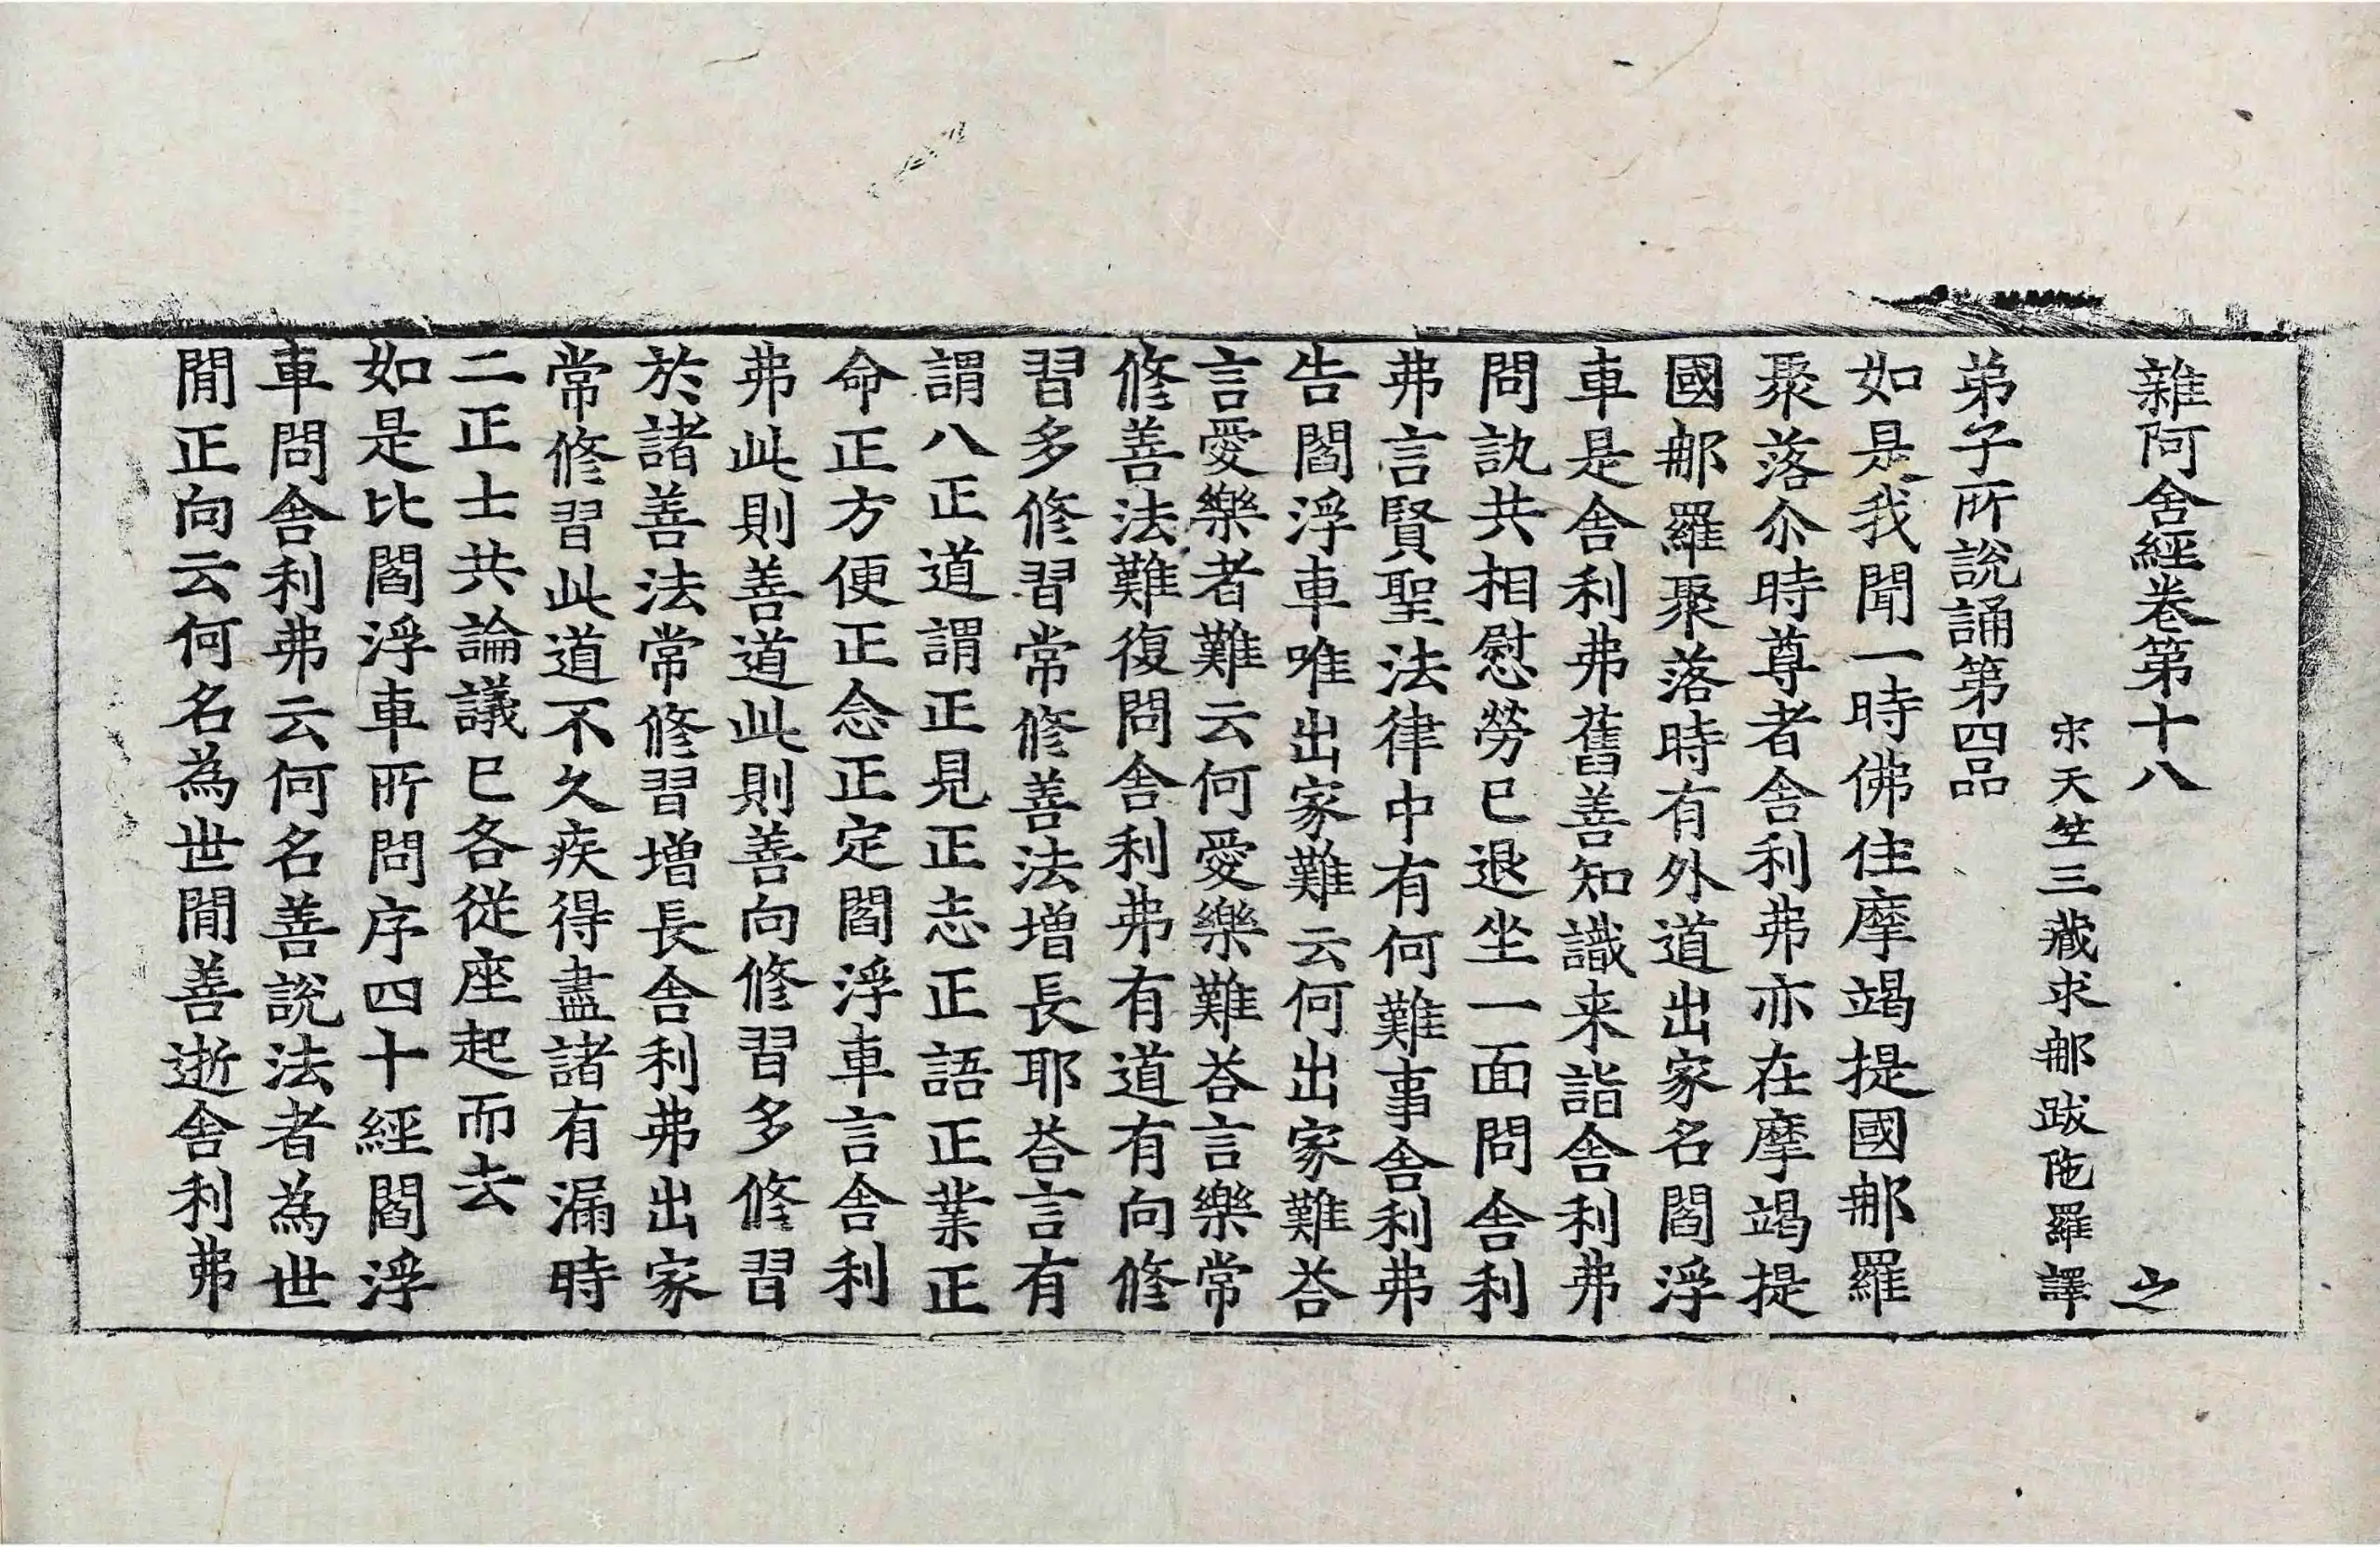 雜阿含經卷第十八 之
宋天竺三藏求𨙻跋陁羅譯
弟子所說誦第四品
如是我聞一時佛住摩竭提國𨙻羅
聚落尒時尊者舍利弗亦在摩竭提
國𨙻羅聚落時有外道出家名閻浮
車是舍利弗舊善知識来詣舍利弗
問訊共相慰勞已退坐一面問舍利
弗言賢聖法律中有何難事舍利弗
告閻浮車唯出家難云何出家難荅
言愛樂者難云何愛樂難荅言樂常
修善法難復問舍利弗有道有向修
習多修習常修善法增長耶荅言有
謂八正道謂正見正志正語正業正
命正方便正念正定閻浮車言舍利
弗此則善道此則善向修習多修習
於諸善法常修習增長舍利弗出家
常修習此道不久疾得盡諸有漏時
二正士共論議已各從座起而去
如是比閻浮車所問序四十經閻浮
車問舍利弗云何名善說法者為世
閒正向云何名為世閒善逝舍利弗